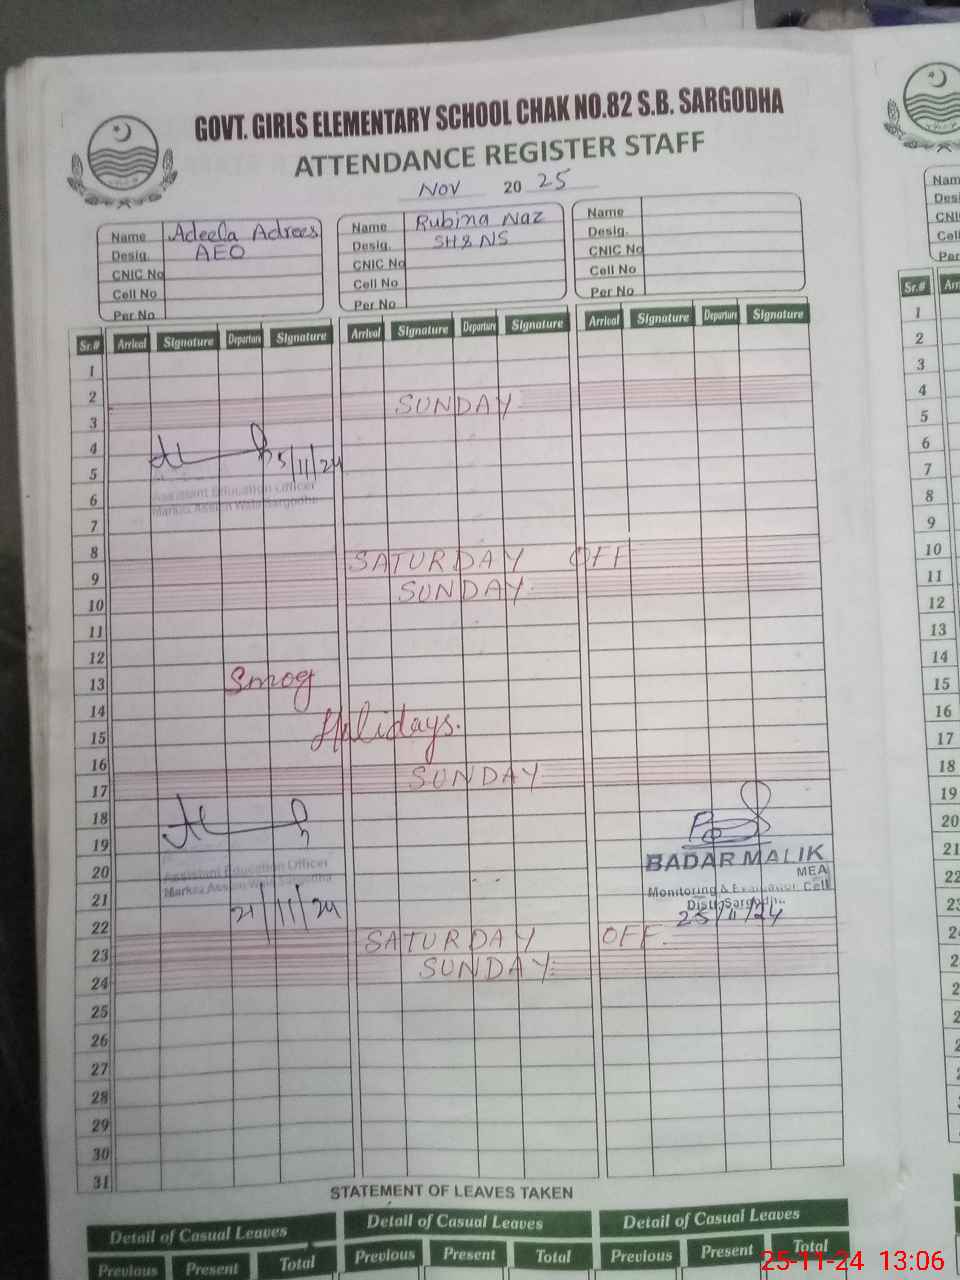 GOVT. GIRLS ELEMENTARY SCHOOL CHAK NO.82 S.B. SARGODHA
ATTENDANCE REGISTER STAFF
Nov 20 25
Name Adeela Adrees
Desig. AEO
CNIC No
Cell No
Per No
Name Rubina Naz
Desig. SH&NS
CNIC No
Cell No
Per No
Name
Desig.
CNIC No
Cell No
Per No
Sr.# Arrival Signature Departure Signature Arrival Signature Departure Signature Arrival Signature Departure Signature
1
2
3 SUNDAY
4
5 5/11/24
6 Assistant Education Officer
Markaz Assian Wala Sargodha
7
8
9 SATURDAY OFF
10 SUNDAY
11
12
13 Smog
14
15 Holidays.
16
17 SUNDAY
18
19
20 Assistant Education Officer
Markaz Assian Wala Sargodha
BADAR MALIK
MEA
Monitoring & Evaluation Cell
Distt: Sargodha
21 21/11/24
25/11/24
22
23 SATURDAY OFF.
24 SUNDAY
25
26
27
28
29
30
31
STATEMENT OF LEAVES TAKEN
Detail of Casual Leaves Detail of Casual Leaves Detail of Casual Leaves
Previous Present Total Previous Present Total Previous Present Total
Sr.#
1
2
3
4
5
6
7
8
9
10
11
12
13
14
15
16
17
18
19
20
21
22
25-11-24 13:06